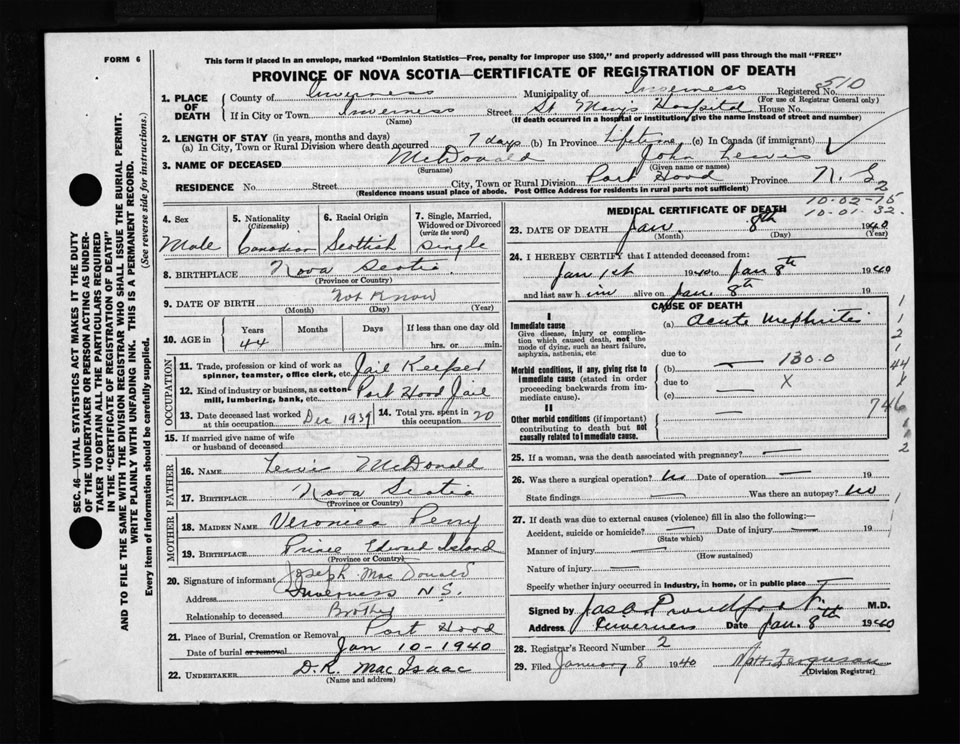 FORM 6
This form if placed in an envelope, marked "Dominion Statistics—Free, penalty for improper use $300," and properly addressed will pass through the mail "FREE"
PROVINCE OF NOVA SCOTIA—CERTIFICATE OF REGISTRATION OF DEATH
1. PLACE OF DEATH County of Inverness Municipality of Inverness Registered No. 510
(For use of Registrar General only)
If in City or Town Inverness Street St. Mary's Hospital House No.
(Name) (If death occurred in a hospital or institution, give the name instead of street and number)
2. LENGTH OF STAY (in years, months and days)
(a) In City, Town or Rural Division where death occurred 7 days (b) In Province Lifetime (c) In Canada (if immigrant)
3. NAME OF DECEASED McDonald John Lewis
(Surname) (Given name or names)
RESIDENCE No. Street City, Town or Rural Division Port Hood Province N. S.
(Residence means usual place of abode. Post Office Address for residents in rural parts not sufficient)
SEC. 46—VITAL STATISTICS ACT MAKES IT THE DUTY
OF THE UNDERTAKER OR PERSON ACTING AS UNDER-
TAKER TO OBTAIN ALL THE PARTICULARS REQUIRED
IN THE "CERTIFICATE OF REGISTRATION OF DEATH"
AND TO FILE THE SAME WITH THE DIVISION REGISTRAR WHO SHALL ISSUE THE BURIAL PERMIT.
WRITE PLAINLY WITH UNFADING INK. THIS IS A PERMANENT RECORD.
Every item of information should be carefully supplied. (See reverse side for instructions.)
4. Sex 5. Nationality (Citizenship) 6. Racial Origin 7. Single, Married, Widowed or Divorced (write the word)
Male Canadian Scottish Single
8. BIRTHPLACE Nova Scotia
(Province or Country)
9. DATE OF BIRTH Not Know
(Month) (Day) (Year)
10. AGE in Years Months Days If less than one day old
44 hrs. or min.
OCCUPATION
11. Trade, profession or kind of work as spinner, teamster, office clerk, etc. Jail Keeper
12. Kind of industry or business, as cotton mill, lumbering, bank, etc. Port Hood Jail
13. Date deceased last worked at this occupation Dec 1939 14. Total yrs. spent in this occupation 20
15. If married give name of wife or husband of deceased
FATHER
16. NAME Lewis McDonald
17. BIRTHPLACE Nova Scotia
MOTHER
18. MAIDEN NAME Veronica Perry
19. BIRTHPLACE Prince Edward Island
(Province or Country)
20. Signature of informant Joseph MacDonald
Address Inverness N.S.
Relationship to deceased Brother
21. Place of Burial, Cremation or Removal Port Hood
Date of burial or removal Jan 10-1940
22. UNDERTAKER D.R. MacIsaac
(Name and address)
MEDICAL CERTIFICATE OF DEATH
2
10-02-75
10-01-32.
23. DATE OF DEATH Jan. 8th 1940
(Month) (Day) (Year)
24. I HEREBY CERTIFY that I attended deceased from:
Jan 1st 1940 to Jan 8th 1940
and last saw him alive on Jan. 8th 19
CAUSE OF DEATH
I
Immediate cause (a) Acute nephritis
Give disease, injury or complication which caused death, not the mode of dying, such as heart failure, asphyxia, asthenia, etc
due to
Morbid conditions, if any, giving rise to immediate cause (stated in order proceeding backwards from immediate cause). (b) — 130.0
due to — X
(c) —
II
Other morbid conditions (if important) contributing to death but not causally related to immediate cause. —
1
1
2
1
44
746
2
25. If a woman, was the death associated with pregnancy? —
26. Was there a surgical operation? No Date of operation — 19
State findings — Was there an autopsy? No
27. If death was due to external causes (violence) fill in also the following:
Accident, suicide or homicide? — Date of injury — 19
(State which)
Manner of injury —
(How sustained)
Nature of injury —
Specify whether injury occurred in industry, in home, or in public place —
Signed by Jas Proudfoot M.D.
Address Inverness Date Jan. 8th 1940
28. Registrar's Record Number 2
29. Filed January 8 1940 Ferguson
(Division Registrar)